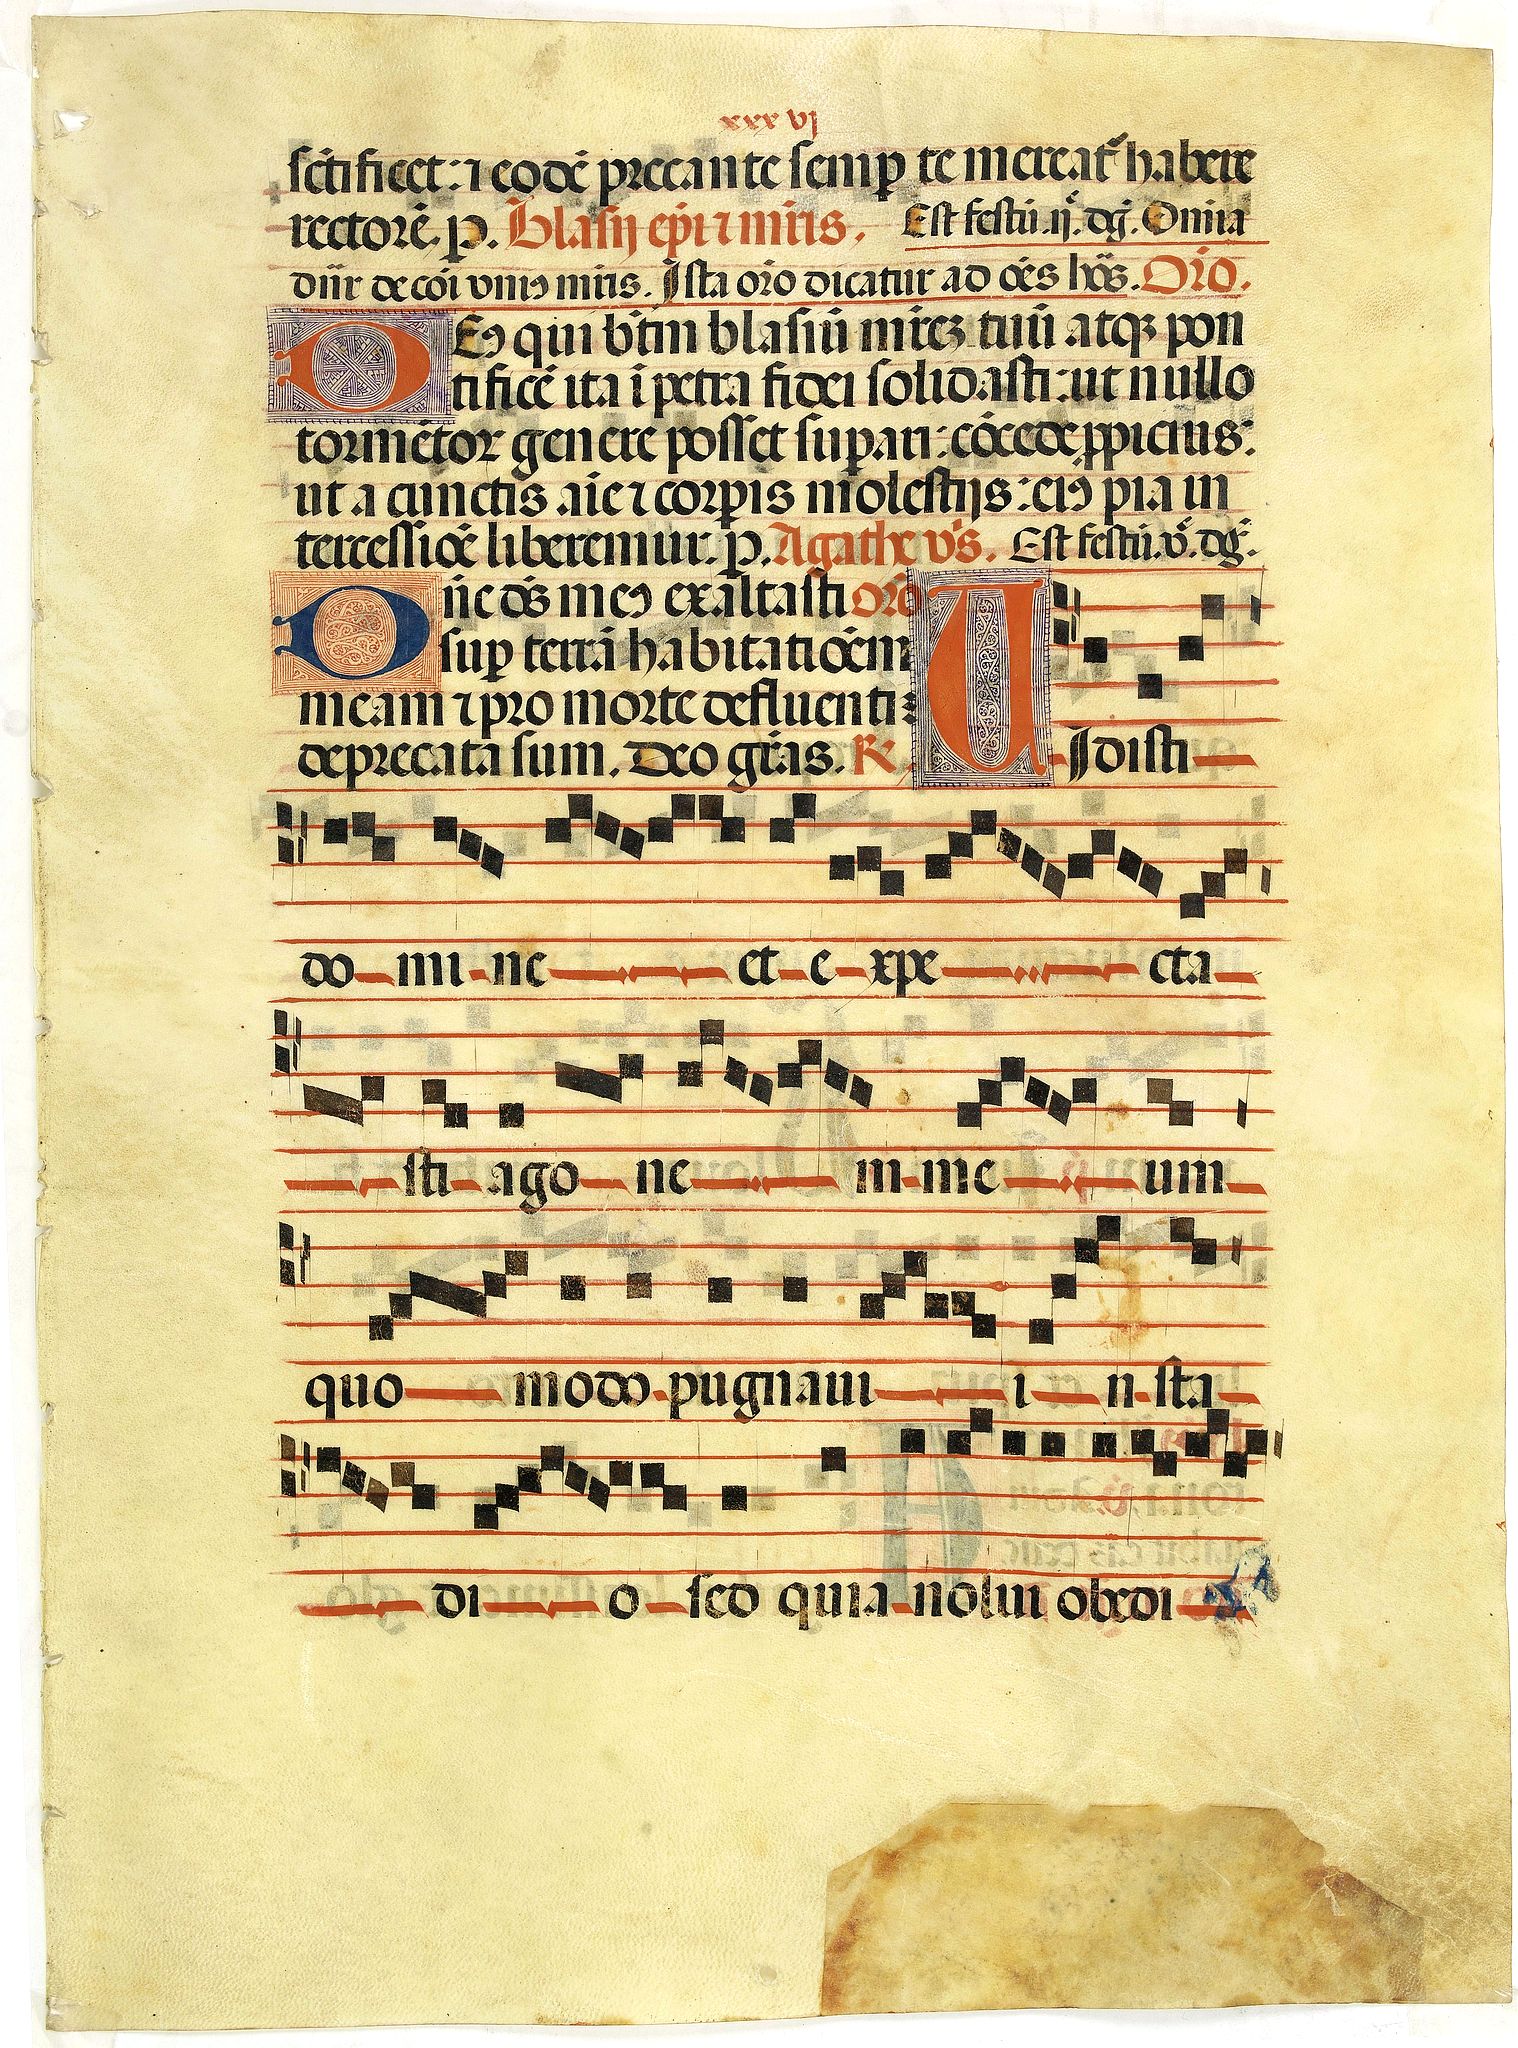 xxxvj
sctificet: ⁊ eodē precante semꝑ te mereat᷑ habere
rectorē. p. Blasij ep̄i ⁊ mr̄is. Est festū .ij. dg̃. Om̄ia
dn̄r de cōi vniꝰ mr̄is. Ista or̄o dicatur ad oēs hōs. Or̄o.
DEꝰ qui btm̄ blasiū mr̄eꝫ tuū atqꝫ pon
tificē ita ī petra fidei solidasti: ut nullo
tormētoꝝ genere posset suꝑari: cōcede ꝓpicius:
ut a cunctis aīe ⁊ corꝑis molestijs: eiꝰ pia in
tercessiōe liberemur. p. Agathe v̄s. Est festū .v̊. dg̃.
Dn̄e dꝰs meꝰ exaltasti or̄o
suꝑ terrā habitatiōem
meam ⁊ pro morte defluenti
deprecata sum. Deo gr̄as. ℟.
UIdisti
do mi ne et e xpe cta
sti ago ne m me um
quo modo pugnaui i n sta
di o sed quia nolui obedi